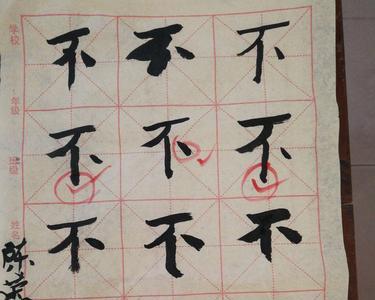 不不不
不不不
不不不
学校
年级
班级
姓名
陈